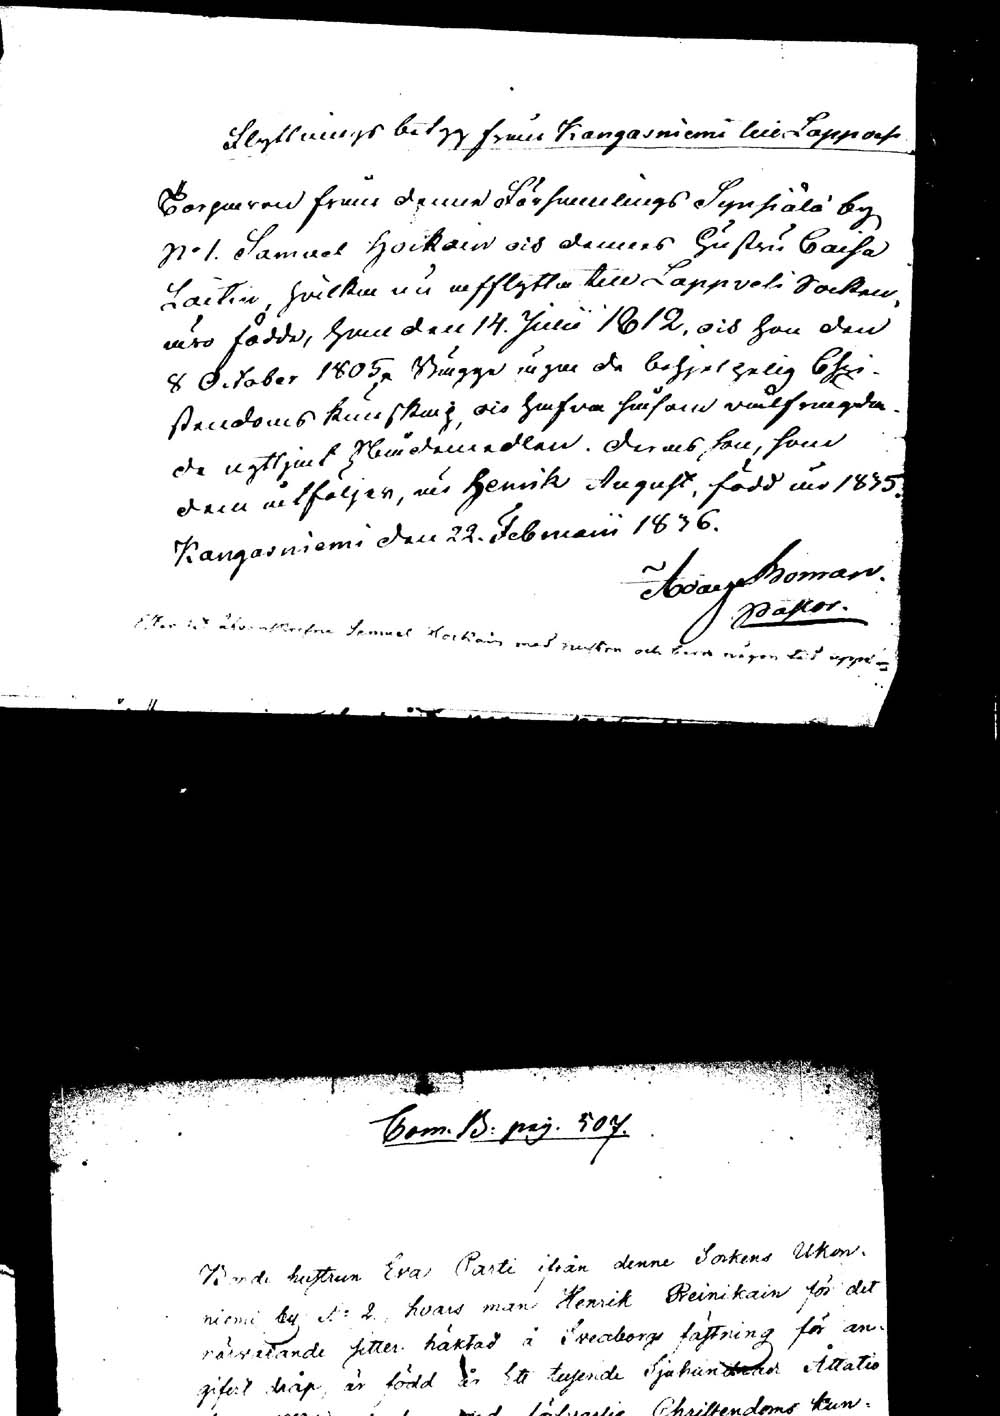 Flyttnings betyg från Kangasniemi till Lappvesi
Torparen från denne Församlings Synsiälä by
No 1. Samuel Hoikain och dennes Hustru Caisa
Laitin, hvilka nu afflytta till Lappvesi Socken,
äro födde, han den 14. Julii 1812, och hon den
8 October 1805. Bägge ägna de behjelpelig Chri-
stendoms kunskap, och hafva
de nyttjat Nådemedlen. Deras son, som
dem åtföljer, är Henrik August, född år 1835.
Kangasniemi den 22. Februarii 1836.
Boman.
Pastor.
Samuel Hoikain med hustru och barn någon tid
Com. B: pag. 507.
Bonde hustrun Eva Parti ifrån denne Sockens Ukon-
niemi by N: 2, hvars man Henrik Reinikain för det
närvarande sitter häktad å Sveaborgs fästning för an-
gifvit dråp, är född år Ett tusende Sjuhundrade Åttatio
Christendoms kun-